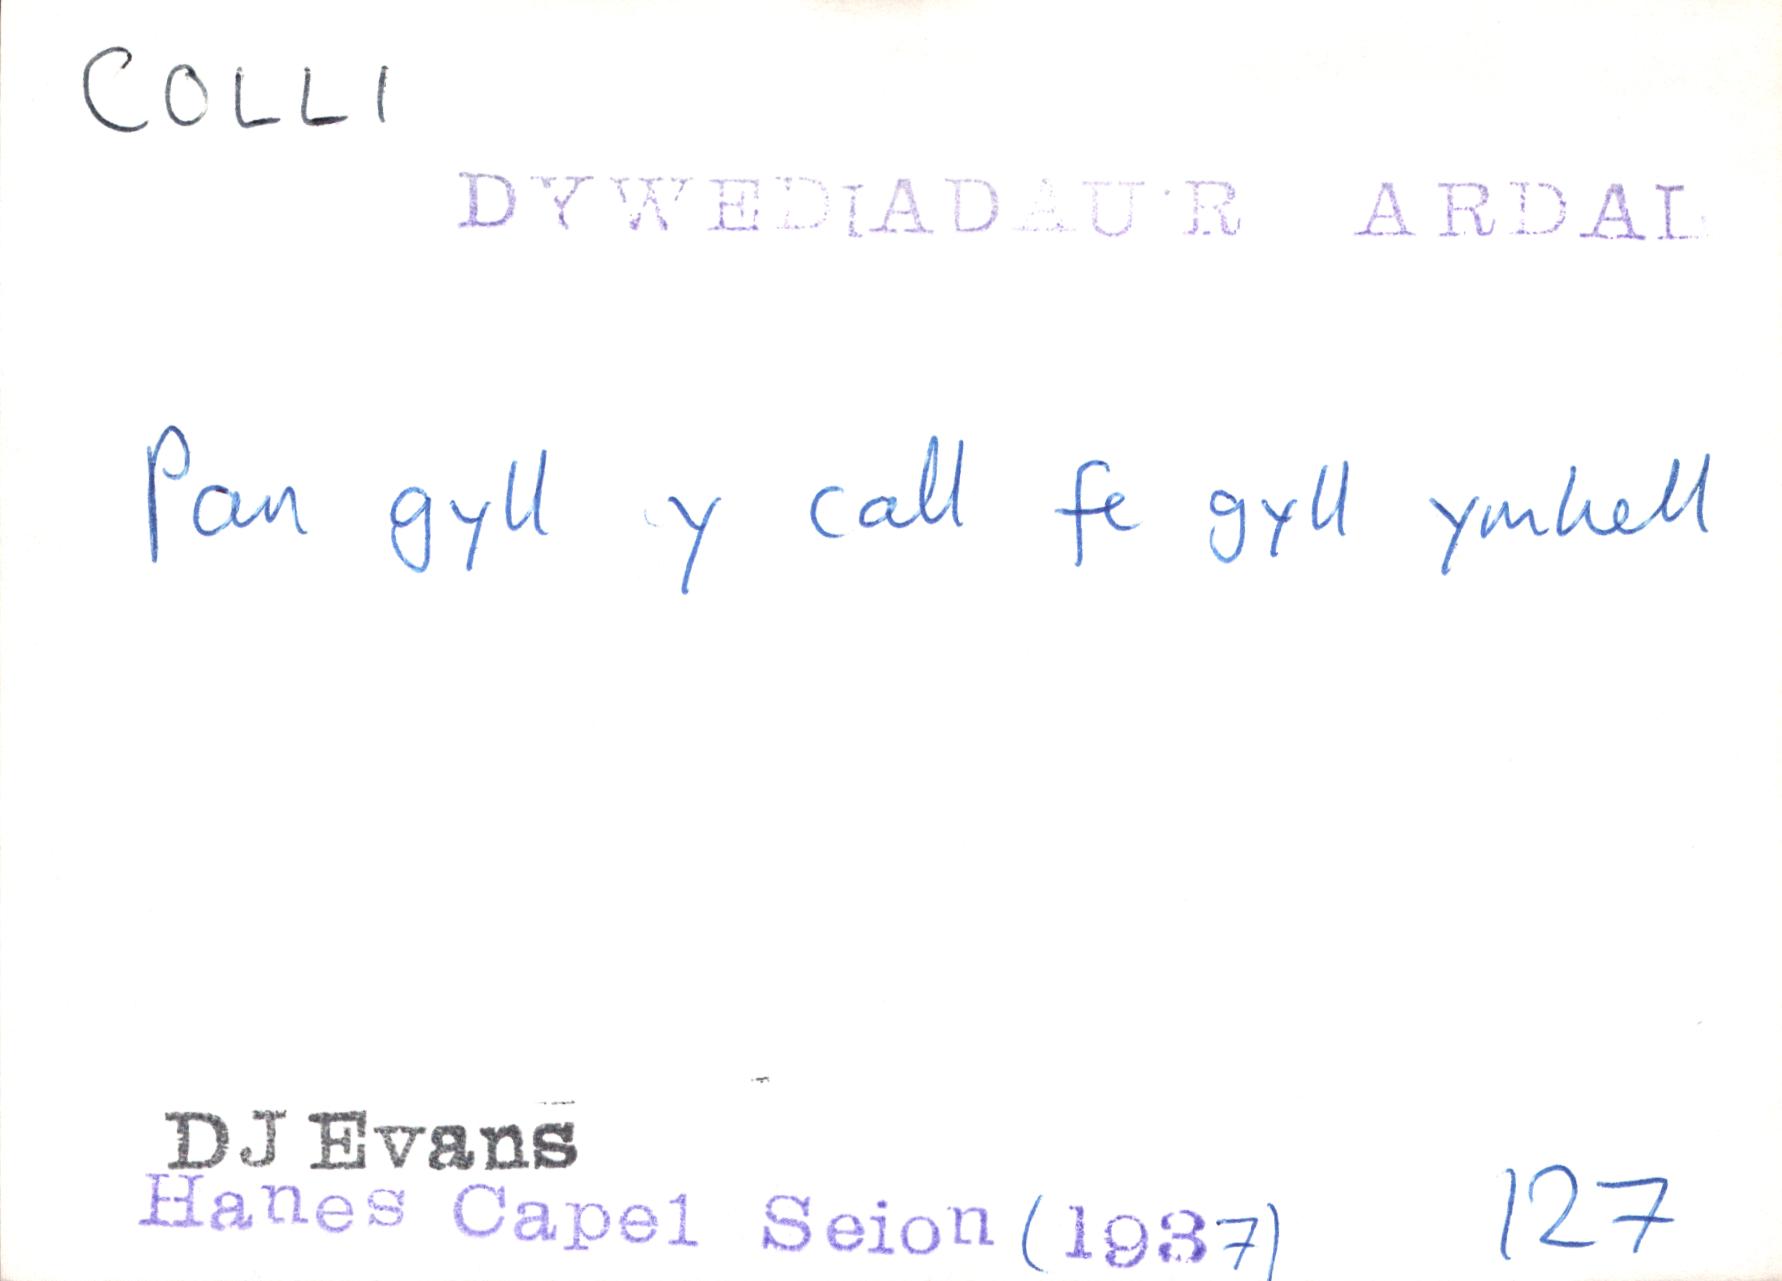 COLLI
DYWEDIADAU'R ARDAL
Pan gyll y call fe gyll ymhell
DJ Evans
Hanes Capel Seion (1937) 127